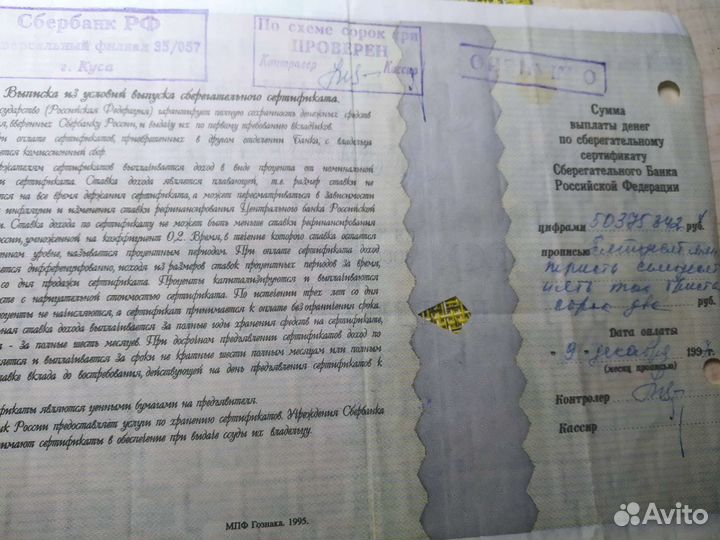 Сбербанк РФ
филиал 35/057
г. Куса
По схеме сорок три
ПРОВЕРЕН
Контролер Кассир
ОПЛАЧЕНО
Выписка из условий выпуска сберегательного сертификата.
осударство (Российская Федерация) гарантирует полную сохранность денежных средств
вверенных Сбербанку России, и выдачу их по первому требованию вкладчиков.
ри оплате сертификатов, приобретенных в другом отделении банка, с владельца
ется комиссионный сбор.
ержателям сертификатов выплачивается доход в виде процента от номинальной
сертификата. Ставка дохода является плавающей, т.е. размер ставки не
тся на все время держания сертификата, а может пересматриваться в зависимости
инфляции и изменения ставки рефинансирования Центрального банка Российской
и. Ставка дохода по сертификату не может быть меньше ставки рефинансирования
оссии, умноженной на коэффициент 0,2. Время, в течение которого ставка остается
енном уровне, называется процентным периодом. При оплате сертификата доход
ется дифференцированно, исходя из размеров ставок процентных периодов за время,
со дня продажи сертификата. Проценты капитализируются и выплачиваются
есте с нарицательной стоимостью сертификата. По истечении трех лет со дня
роценты не начисляются, а сертификат принимается к оплате без ограничения срока.
ная ставка дохода выплачивается за полные годы хранения средств на сертификате,
- за полные шесть месяцев. При досрочном предъявлении сертификатов доход по
яется и выплачивается за сроки не кратные шести полным месяцам или полным
тавке вклада до востребования, действующей на день предъявления сертификатов к
фикаты являются ценными бумагами на предъявителя.
нк России предоставляет услуги по хранению сертификатов. Учреждения Сбербанка
нимают сертификаты в обеспечение при выдаче ссуды их владельцу.
МПФ Гознака. 1995.
Сумма
выплаты денег
по сберегательному
сертификату
Сберегательного Банка
Российской Федерации
цифрами 50375342 руб.
прописью
триста семьдесят
пять тыс триста
сорок два руб.
Дата оплаты
"9" декабря 199 г.
(месяц прописью)
Контролер
Кассир
Avito